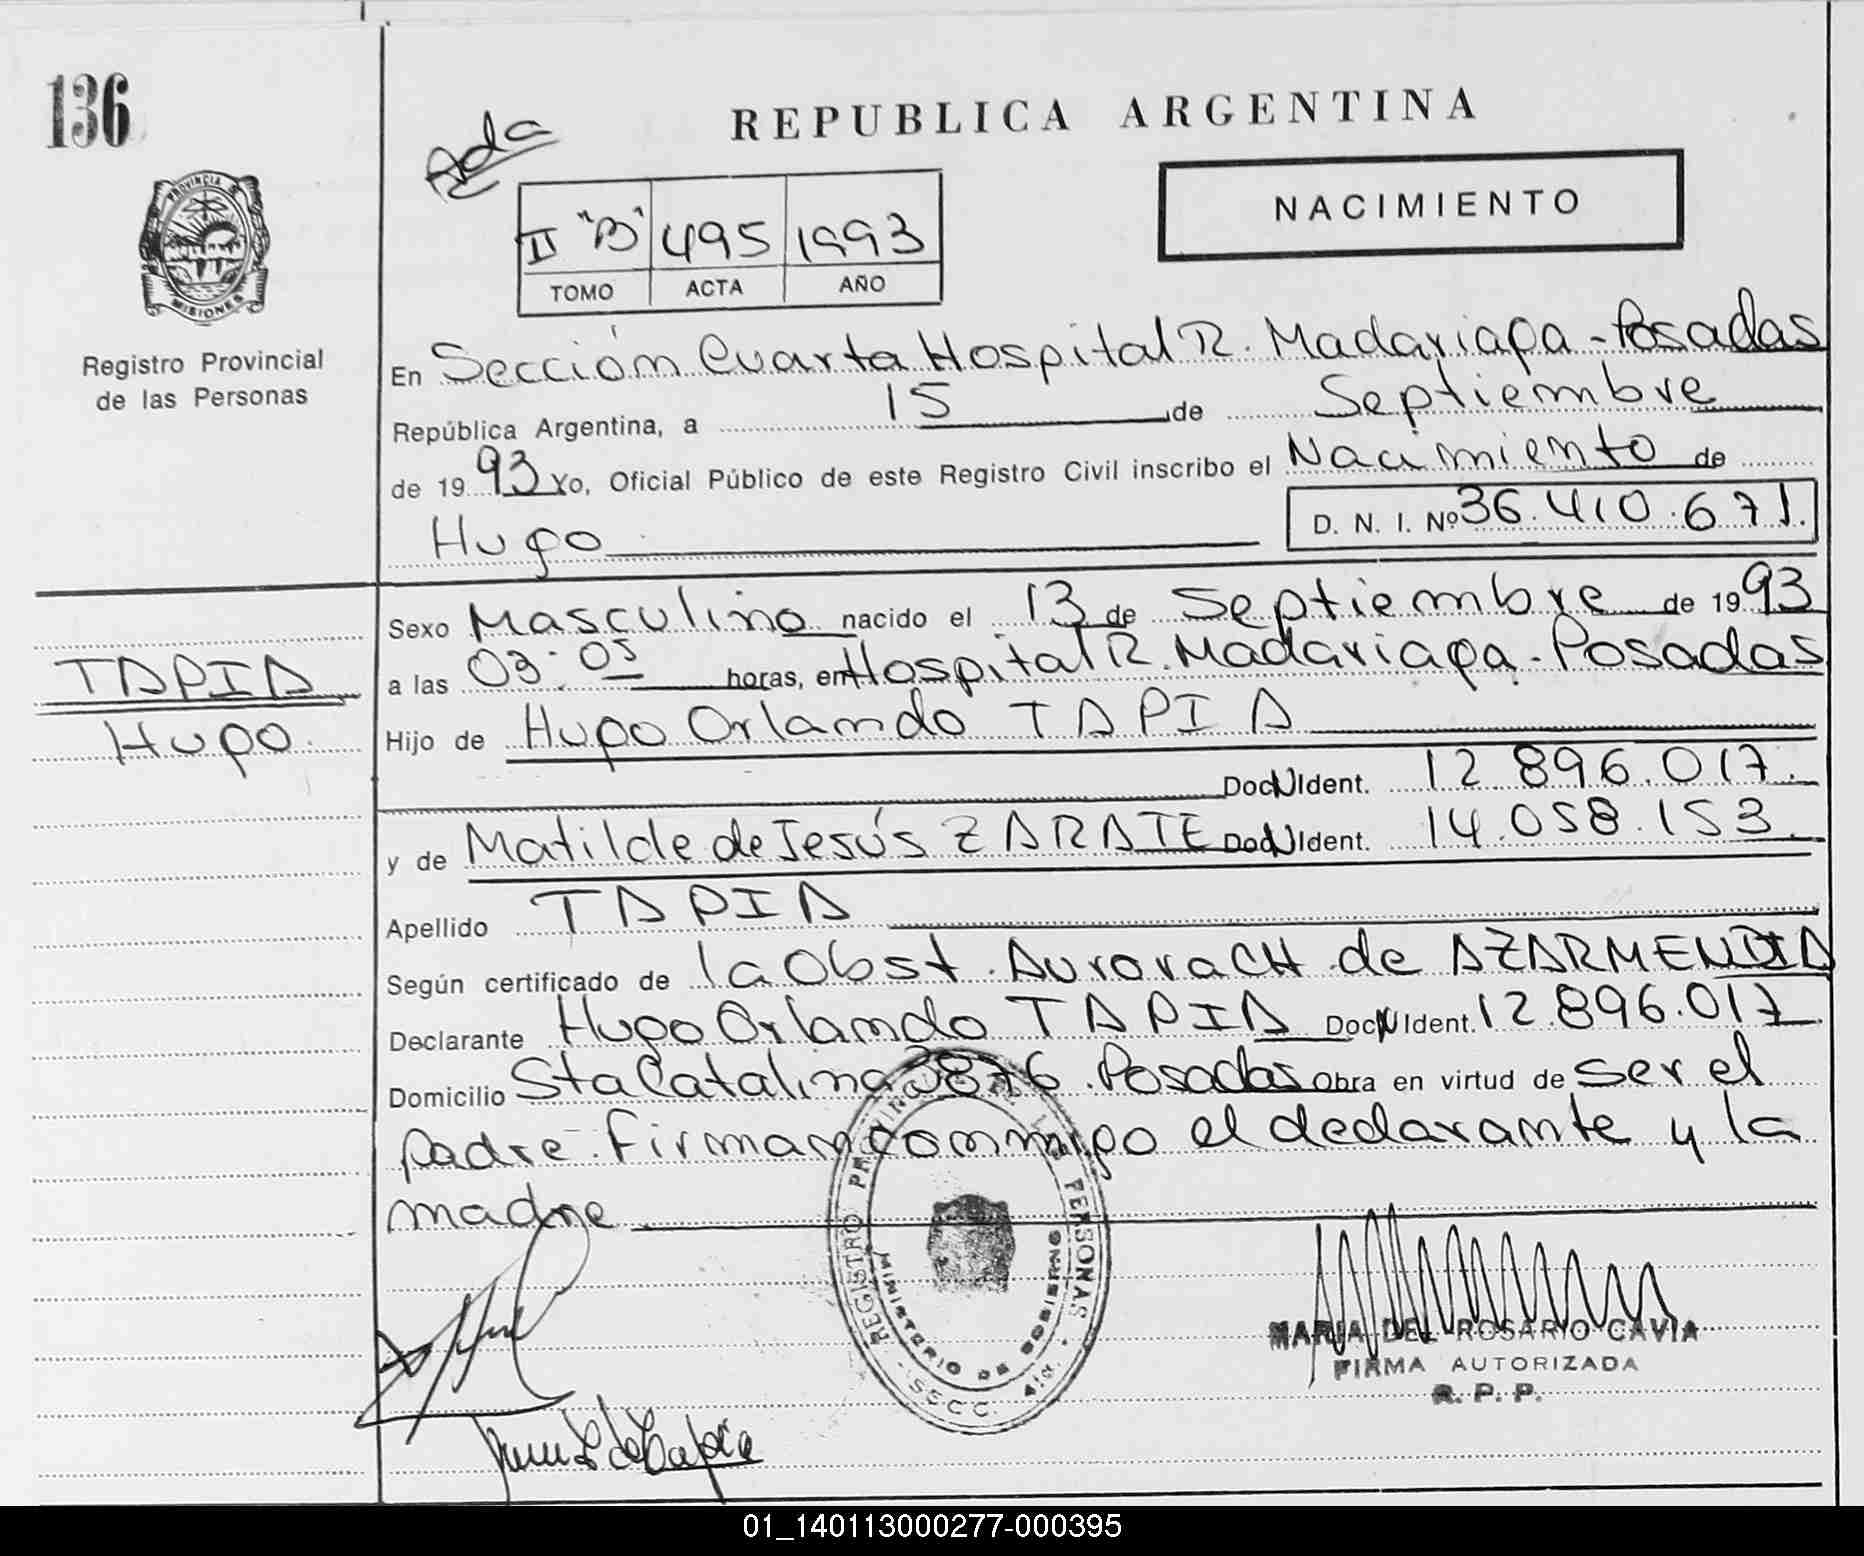 136
REPUBLICA ARGENTINA
Ada
PROVINCIA DE
MISIONES
Registro Provincial
de las Personas
II "B" 495 1993
TOMO ACTA AÑO
NACIMIENTO
En Sección Cuarta Hospital R. Madariaga - Posadas
República Argentina, a 15 de Septiembre
de 1993 Yo, Oficial Público de este Registro Civil inscribo el Nacimiento de
Hugo D. N. I. Nº 36.410.671.
Sexo Masculino nacido el 13 de Septiembre de 1993
a las 03:05 horas, en Hospital R. Madariaga - Posadas
TAPIA
Hugo.
Hijo de Hugo Orlando TAPIA
Doc N Ident. 12.896.017.
y de Matilde de Jesús ZARATE Doc N Ident. 14.058.153.
Apellido TAPIA
Según certificado de la Obst. Aurora CH de AZARMENDIA
Declarante Hugo Orlando TAPIA Doc N Ident. 12.896.017
Domicilio Sta Catalina 3876. Posadas Obra en virtud de ser el
padre. Firman conmigo el declarante y la
madre
REGISTRO PROVINCIAL DE LAS PERSONAS
MINISTERIO DE GOBIERNO
SECC. 4ta.
MARIA DEL ROSARIO CAVIA
FIRMA AUTORIZADA
R. P. P.
01_140113000277-000395